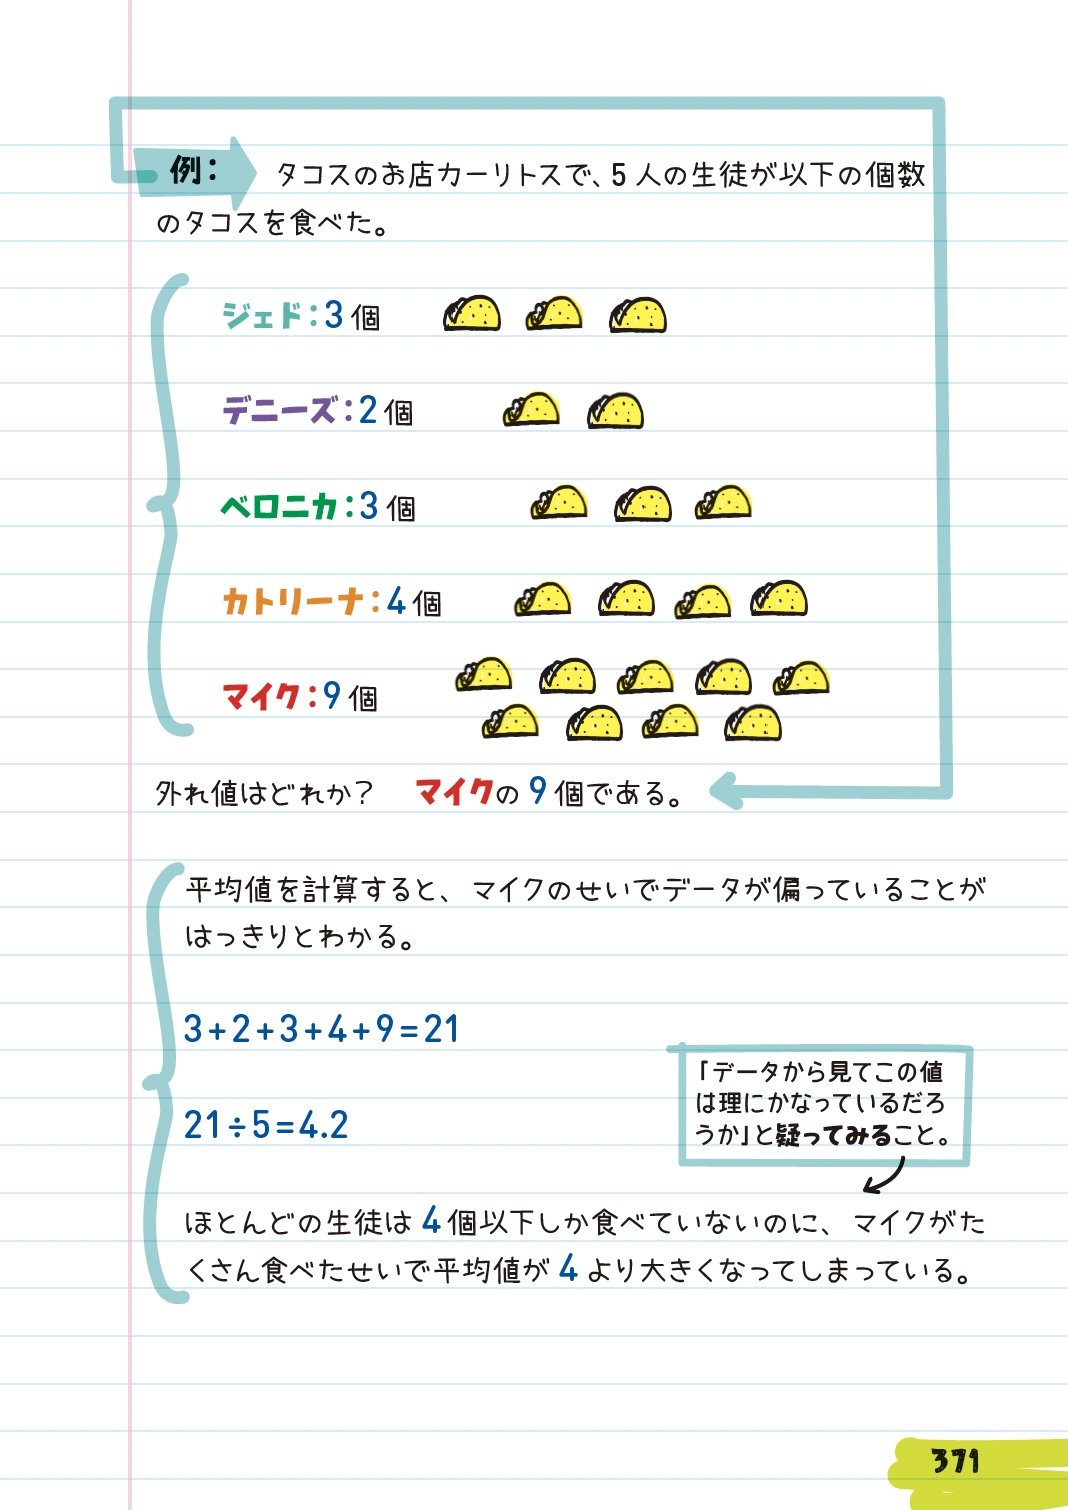 例： タコスのお店カーリトスで、5人の生徒が以下の個数
のタコスを食べた。
ジェド：3個
デニーズ：2個
ベロニカ：3個
カトリーナ：4個
マイク：9個
外れ値はどれか？ マイクの9個である。
平均値を計算すると、マイクのせいでデータが偏っていることが
はっきりとわかる。
3+2+3+4+9=21
21÷5=4.2
「データから見てこの値
は理にかなっているだろ
うか」と疑ってみること。
ほとんどの生徒は4個以下しか食べていないのに、マイクがた
くさん食べたせいで平均値が4より大きくなってしまっている。
371